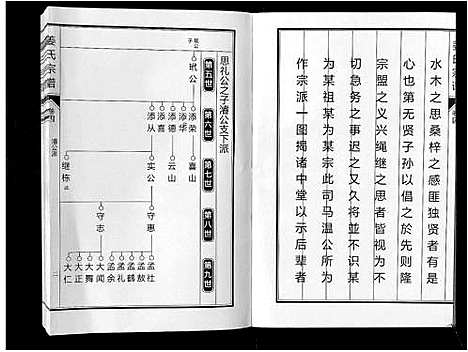 水木之思桑梓之感匪独贤者有是
心也第无贤子孙以倡之於先则隆
宗盟之义兴绳继之思者皆视为不
切急务之事迟之又久将並不识某
为某祖某为某宗此司马温公所为
作宗派一图揭诸中堂以示后辈者
思礼公之子濬公支下派
第五世
第六世
第七世
第八世
第九世
玭公
添荣
添华
添德
添喜
添从
喜山
云山
实公
继栋
守惠
守志
孟社
孟放
孟鹤
孟礼
孟余
大闻
大舞
大正
大仁
姜氏宗谱
卷四
三